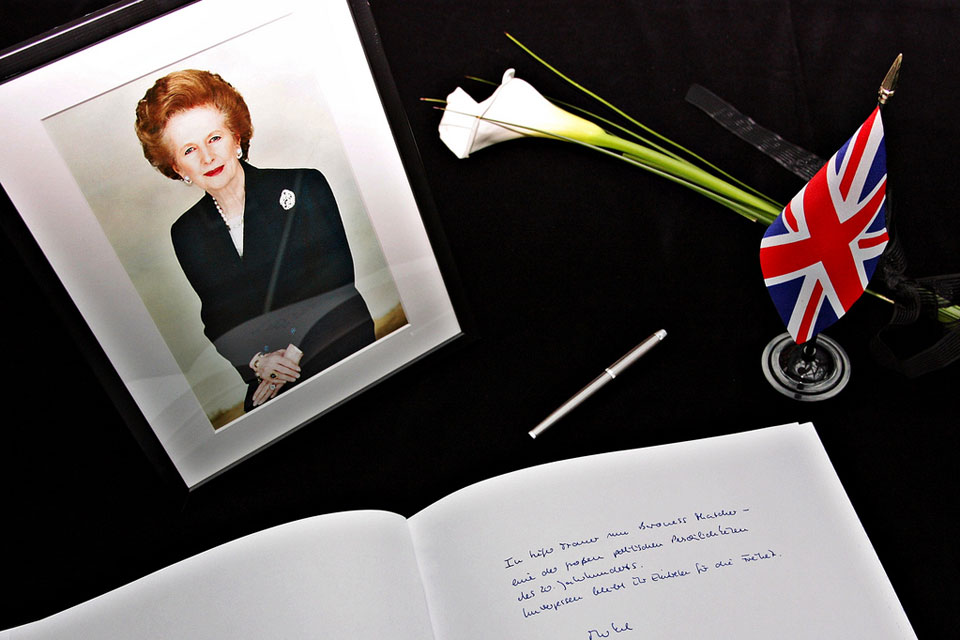 In tiefer Trauer um Baroness Thatcher –
eine der großen politischen Persönlichkeiten
des 20. Jahrhunderts.
Unvergessen bleibt ihr Eintreten für die Freiheit.